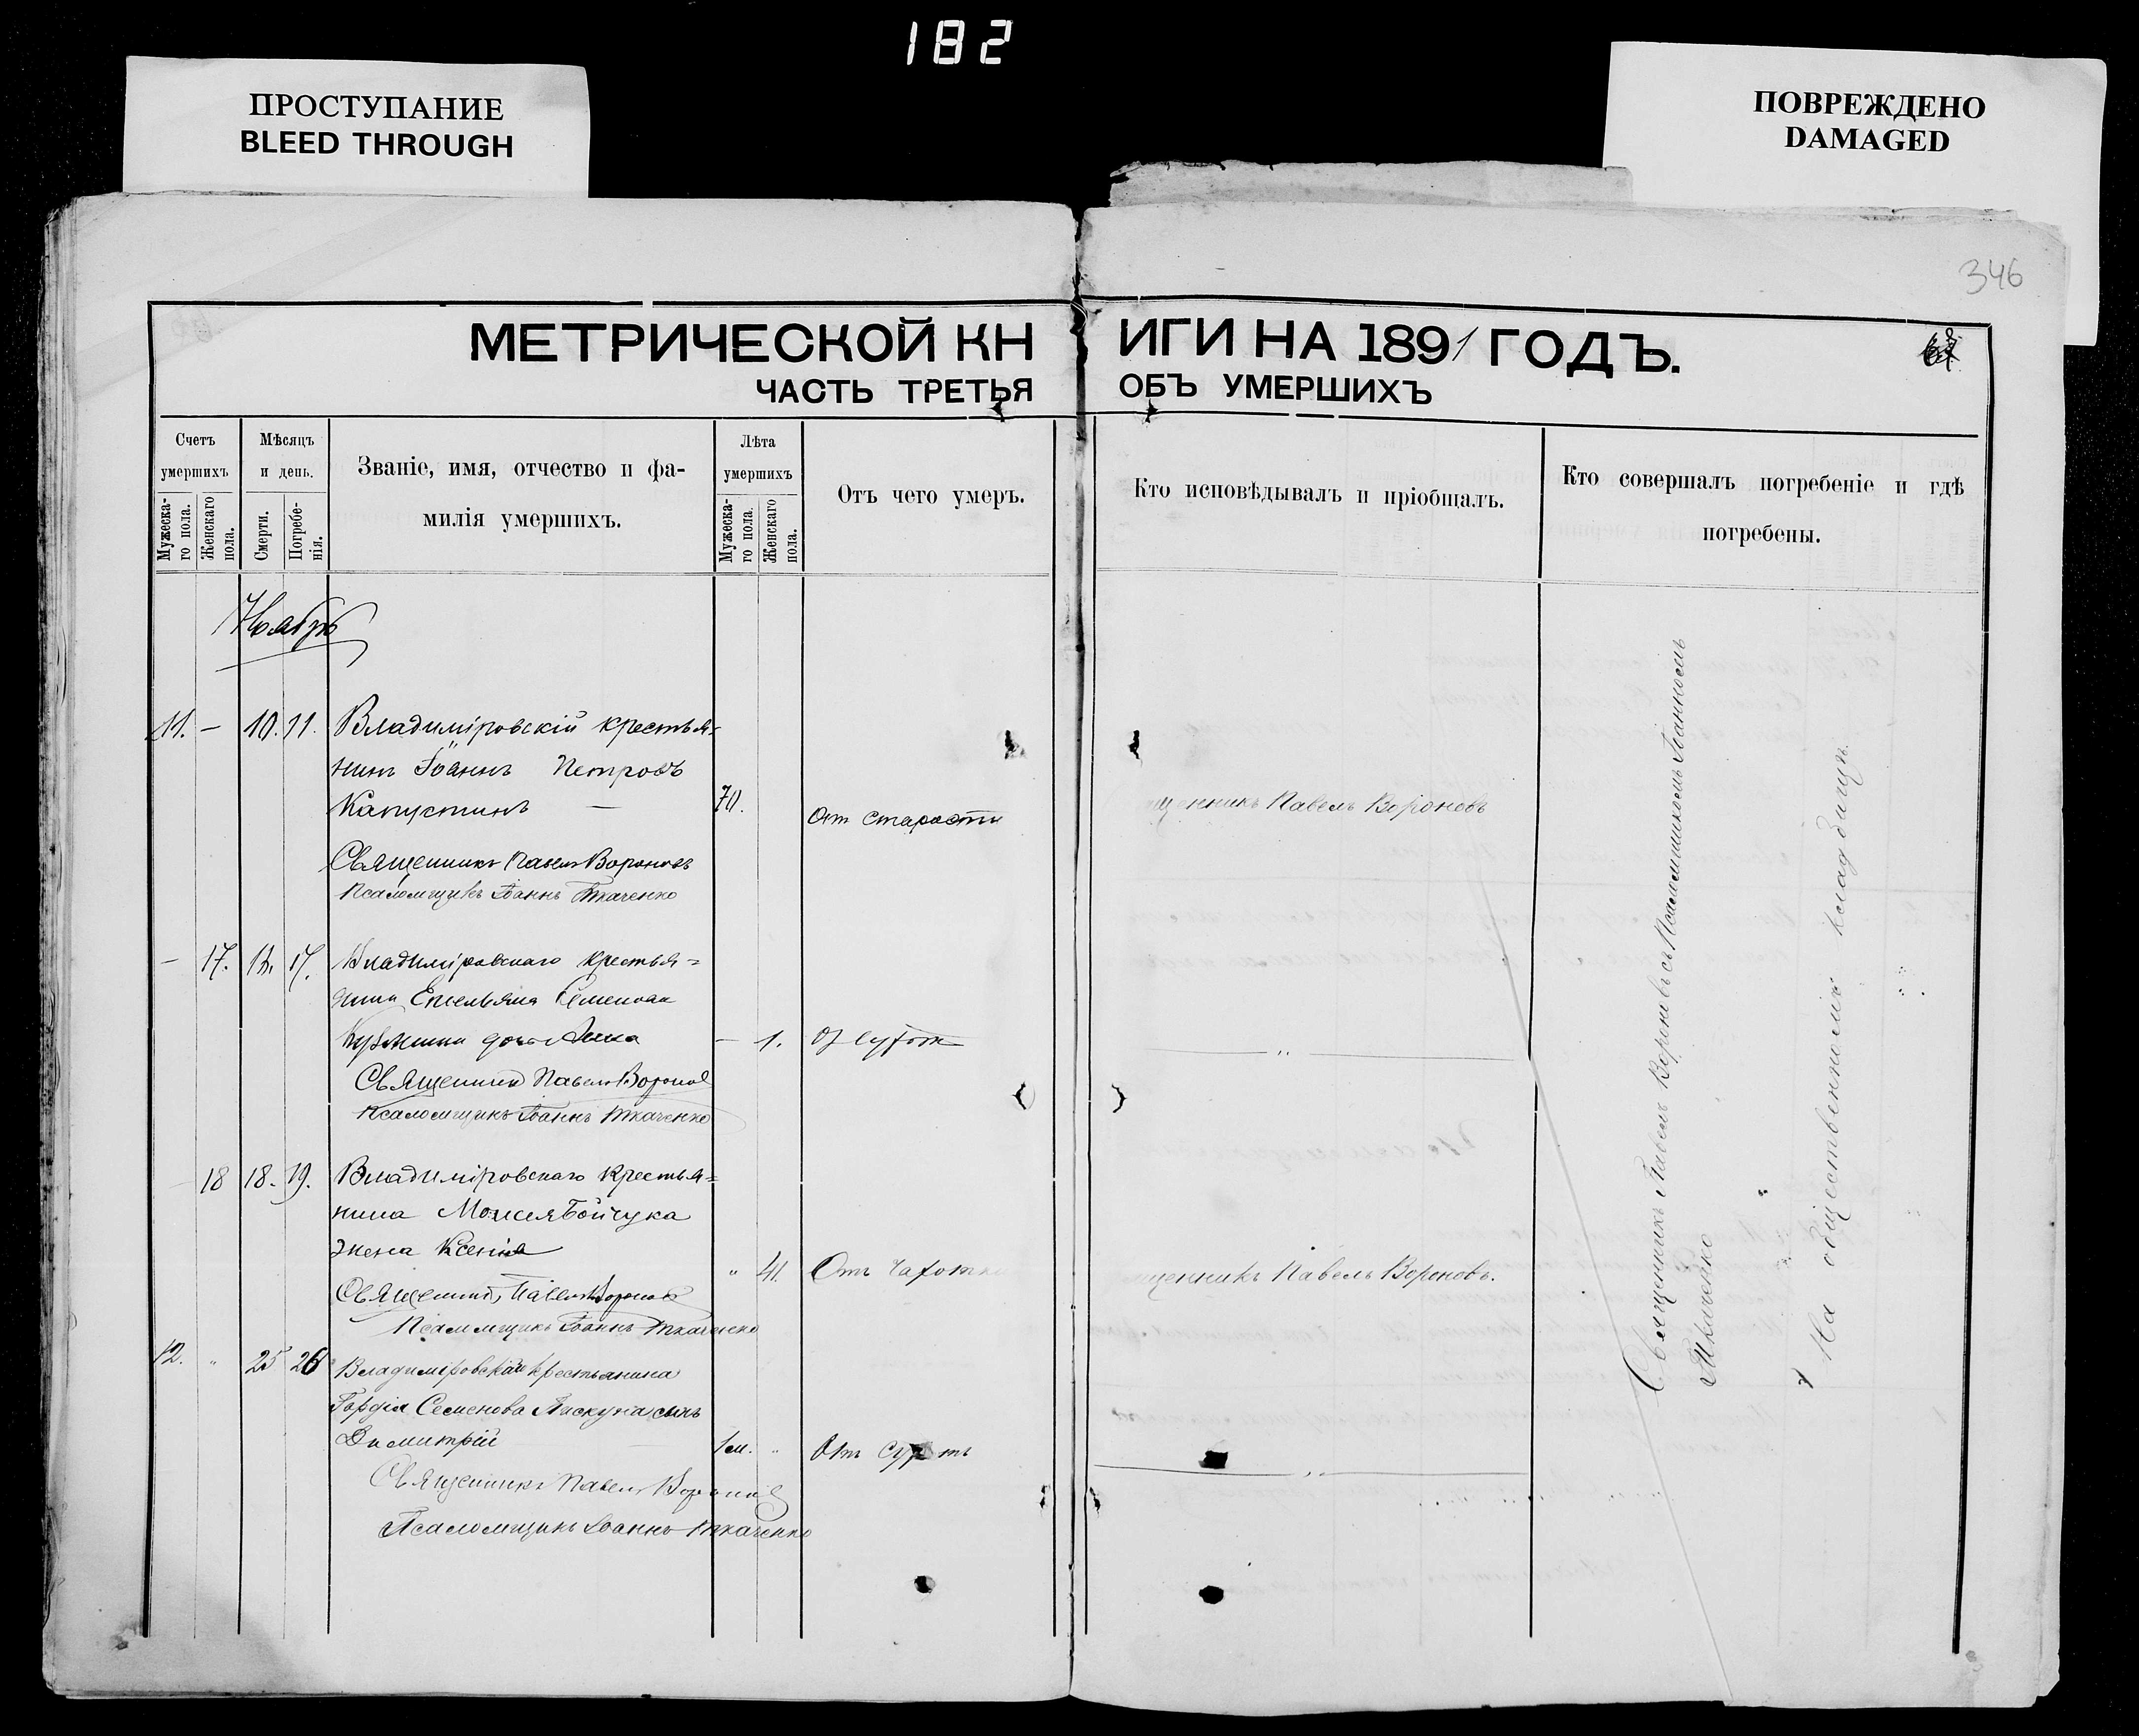 182
ПРОСТУПАНИЕ
BLEED THROUGH
ПОВРЕЖДЕНО
DAMAGED
346
МЕТРИЧЕСКОЙ КН ИГИ НА 1891 ГОДЪ.
ЧАСТЬ ТРЕТЬЯ ОБЪ УМЕРШИХЪ
Счетъ умершихъ
Мужеска-го пола.
Женскаго пола.
Мѣсяцъ и день.
Смерти.
Погребе-нія.
Званіе, имя, отчество и фа-
милія умершихъ.
Лѣта умершихъ
Мужеска-го пола.
Женскаго пола.
Отъ чего умеръ.
Кто исповѣдывалъ и пріобщалъ.
Кто совершалъ погребеніе и гдѣ
погребены.
Ноябрь
11. — 10. 11. Владиміровскій крестья-
нинъ Іоаннъ Петровъ
Капустинъ — 70. От старости щенникъ Павелъ Вороновъ
Священникъ Павелъ Вороновъ
Псаломщикъ Іоаннъ Ткаченко
— 17. 17. Владиміровскаго крестья=
нина Емельяна
дочь — 1.
Священникъ Павелъ Вороновъ
Псаломщикъ Іоаннъ Ткаченко
18 18. 19. Владиміровскаго крестья=
нина Моисея Бойчука
жена Ксенія „ 41. Отъ чахотки щенникъ Павелъ Вороновъ.
Священникъ Павелъ Вороновъ
Псаломщикъ Іоаннъ Ткаченко
12. „ 25 26 крестьянина
Гордія Семенова Пискуна сынъ
Димитрій 1 м. „ Отъ
Священникъ Павелъ Вороновъ
Псаломщикъ Іоаннъ Ткаченко
Священникъ Павелъ Вороновъ съ Псаломщикомъ Іоанномъ
Ткаченко
На общественномъ кладбищѣ